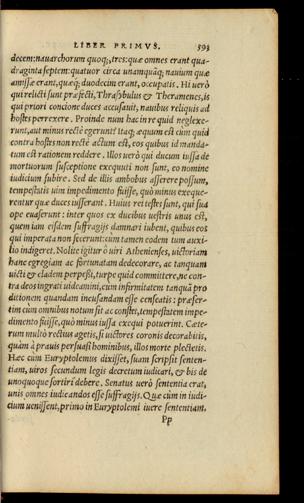 LIBER PRIMVS. 593
decem: nauarchorum quoq;, tres: quæ omnes erant qua-
draginta septem: quatuor circa unamquāq; nauium quæ
amissæ erant, quæq; duodecim erant, occupatis. Hi uerò
qui relicti sunt præfecti, Thrasybulus & Theramenes, is
qui priori concione duces accusauit, nauibus reliquis ad
hostes perrexere. Proinde num hac in re quid neglexe-
runt, aut minus rectè egerunt? Itaq; æquum est cùm quid
contra hostes non rectè actum est, eos quibus id manda-
tum est rationem reddere. Illos uerò qui ducum iussa de
mortuorum susceptione exequuti non sunt, eo nomine
iudicium subire. Sed de illis ambobus asserere possum,
tempestatis uim impedimento fuisse, quò minus exeque-
rentur quæ duces iusserant. Huius rei testes sunt, qui sua
ope euaserunt: inter quos ex ducibus uestris unus est,
quem iam eisdem suffragijs damnari iubent, quibus eos
qui imperata non fecerunt: cum tamen eodem tum auxi-
lio indigeret. Nolite igitur ô uiri Athenienses, uictoriam
hanc egregiam ac fortunatam dedecorare, ac tanquam
uicti & cladem perpessi, turpe quid committere, ne con-
tra deos ingrati uideamini, eum infirmitatem tanquā pro
ditionem quandam incusandam esse censeatis: præser-
tim cùm omnibus notum sit ac constet, tempestatem impe-
dimento fuisse, quò minus iussa exequi potuerint. Cæte-
rum multò rectius agetis, si uictores coronis decorabitis,
quàm à prauis persuasi hominibus, illos morte plectetis.
Hæc cum Euryptolemus dixisset, suam scripsit senten-
tiam, uiros secundum legis decretum iudicari, & bis de
unoquoque sortiri debere. Senatus uerò sententia erat,
unis omnes iudicandos esse suffragijs. Quæ cùm in iudi-
cium uenissent, primo in Euryptolemi iuere sententiam.
Pp